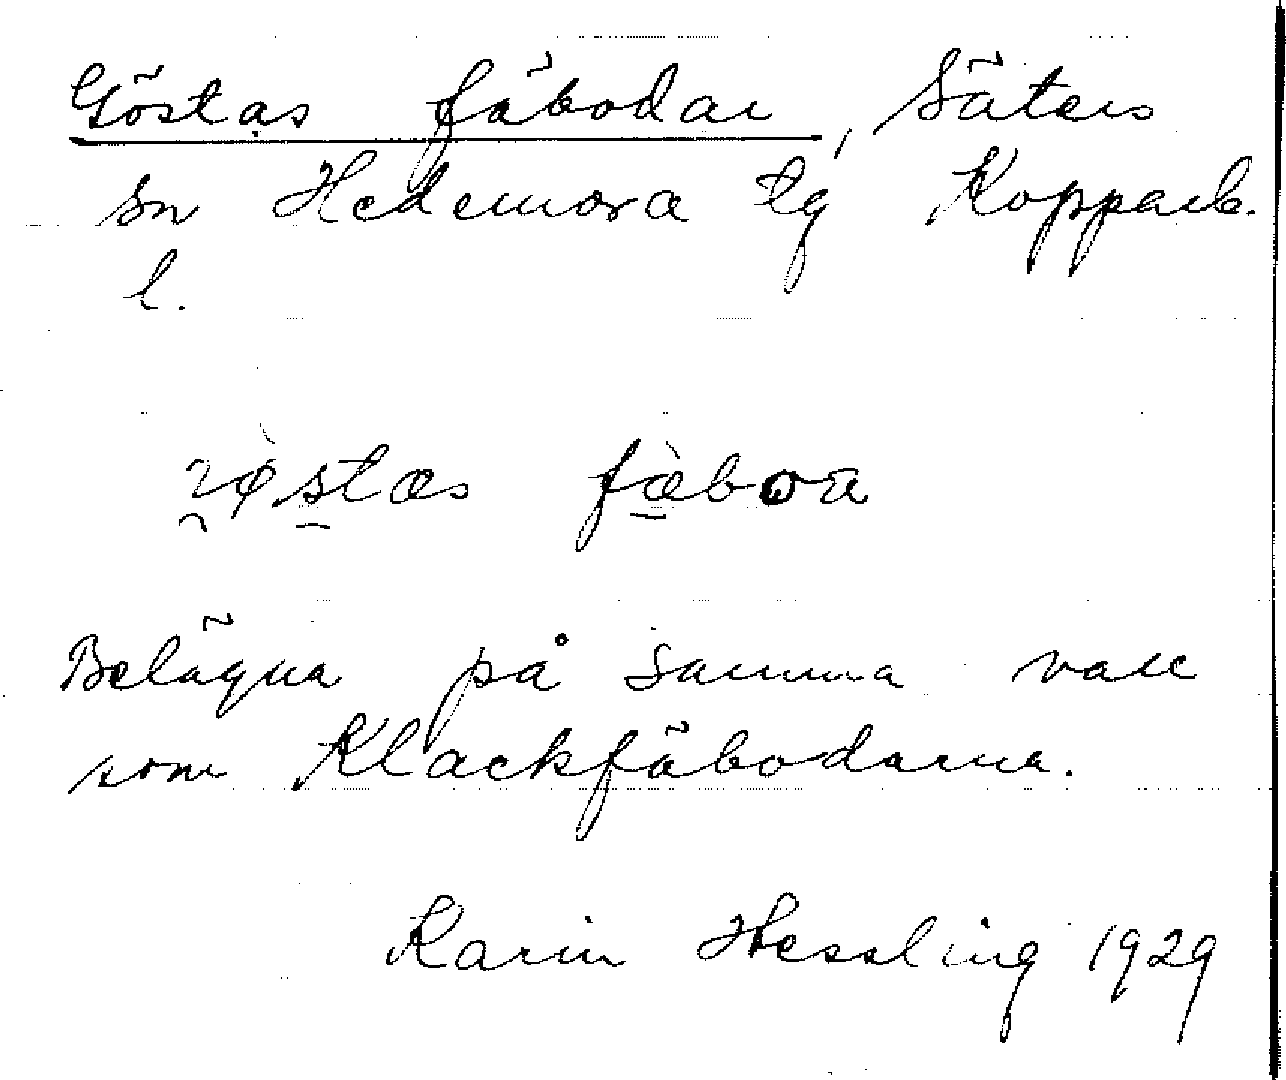 Göstas fäbodar, Säters
sn Hedemora tg Kopparb.
l.
fäbωa
Belägna på samma vall
som Klackfäbodarna.
Karin Hessling 1929